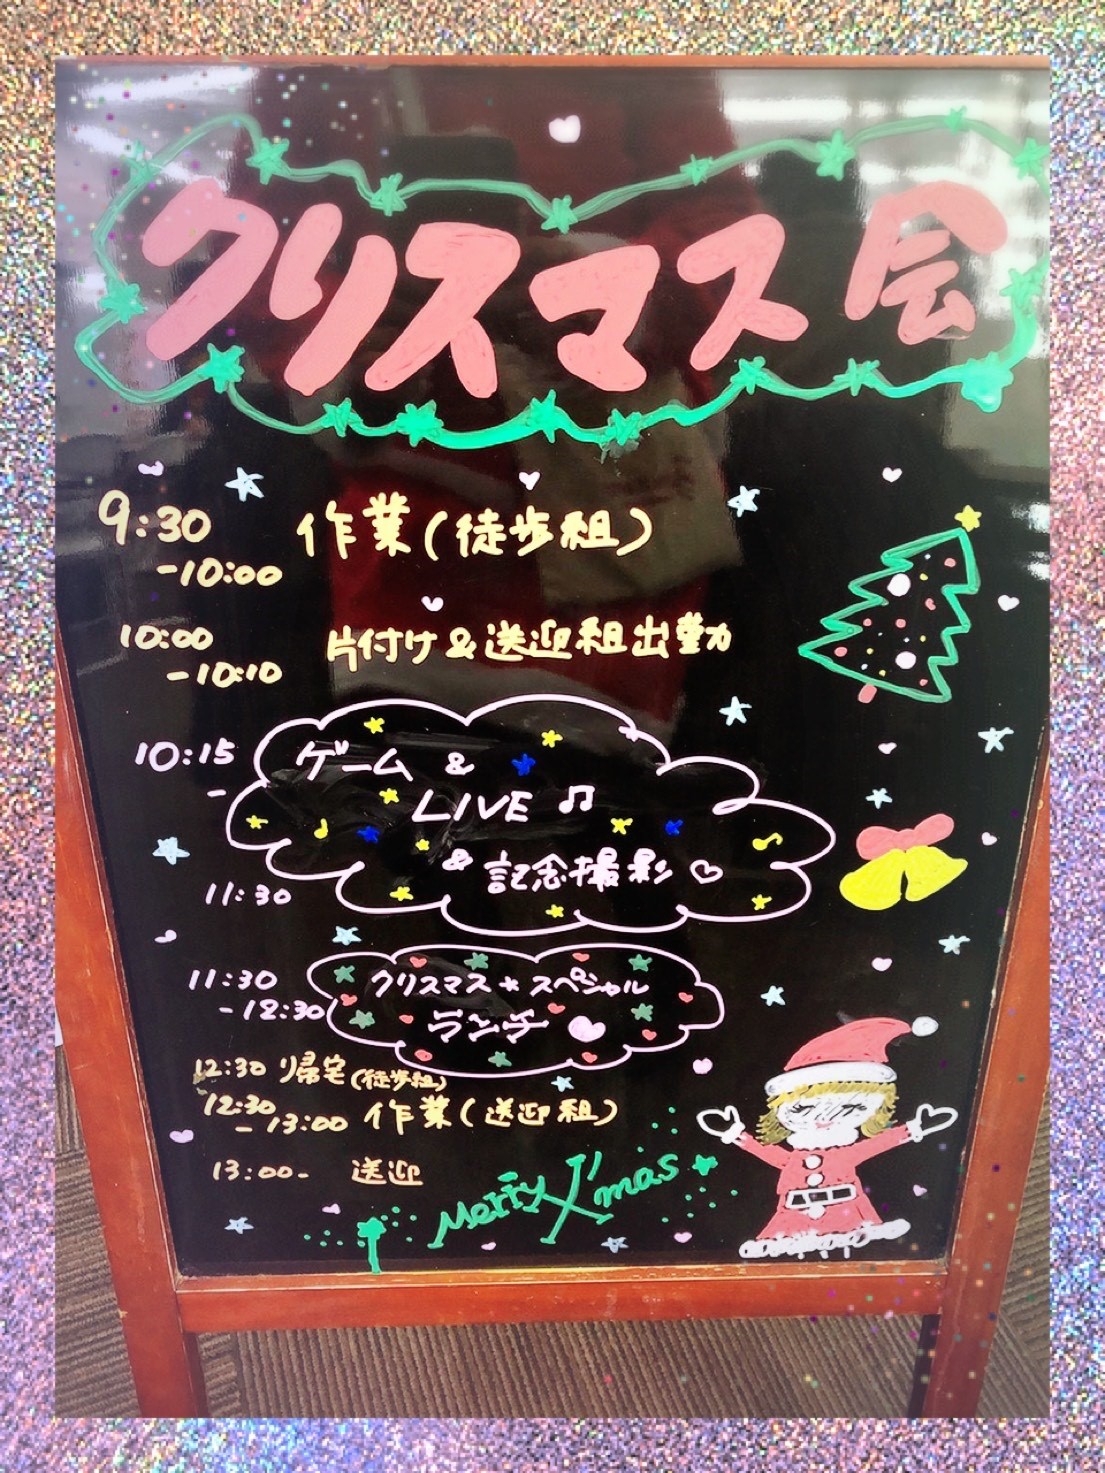 クリスマス会
9:30 作業(徒歩組)
-10:00
10:00 片付け&送迎組出勤
-10:10
10:15 ゲーム &
- LIVE ♫
& 記念撮影 ♡
11:30
11:30 クリスマス★スペシャル
-12:30 ランチ ♥
12:30 帰宅(徒歩組)
12:30
-13:00 作業(送迎組)
13:00- 送迎
Merry X'mas